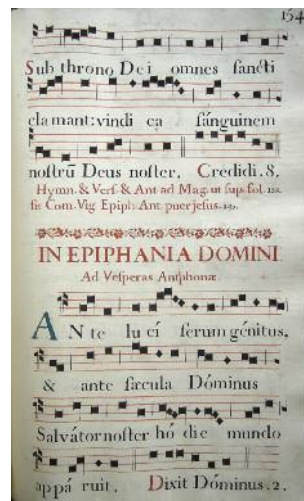 154
Sub throno Dei omnes sancti
clamant: vindica sánguinem
nostrū Deus noster. Credidi. 8.
Hymn. & Vers. & Ant ad Mag. ut sup. fol.
fit Com. Vig Epiph. Ant. puer jesus.
IN EPIPHANIA DOMINI
Ad Vesperas Antiphonæ
ANte lucíferum génitus,
& ante sæcula Dóminus
Salvátor noster hódie mundo
appáruit. Dixit Dóminus. 2.